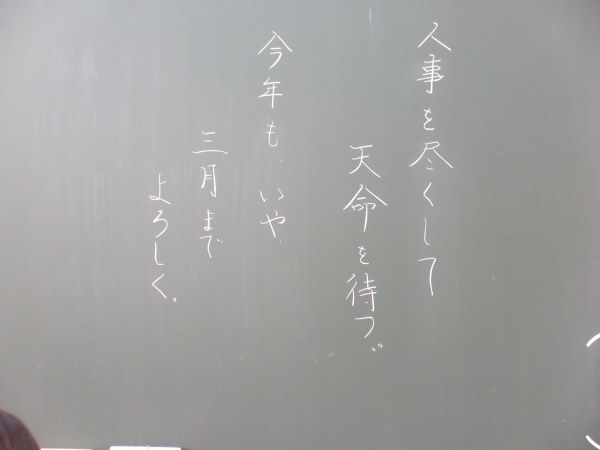 人事を尽くして
天命を待つ。
今年も、いや、
三月まで
よろしく。